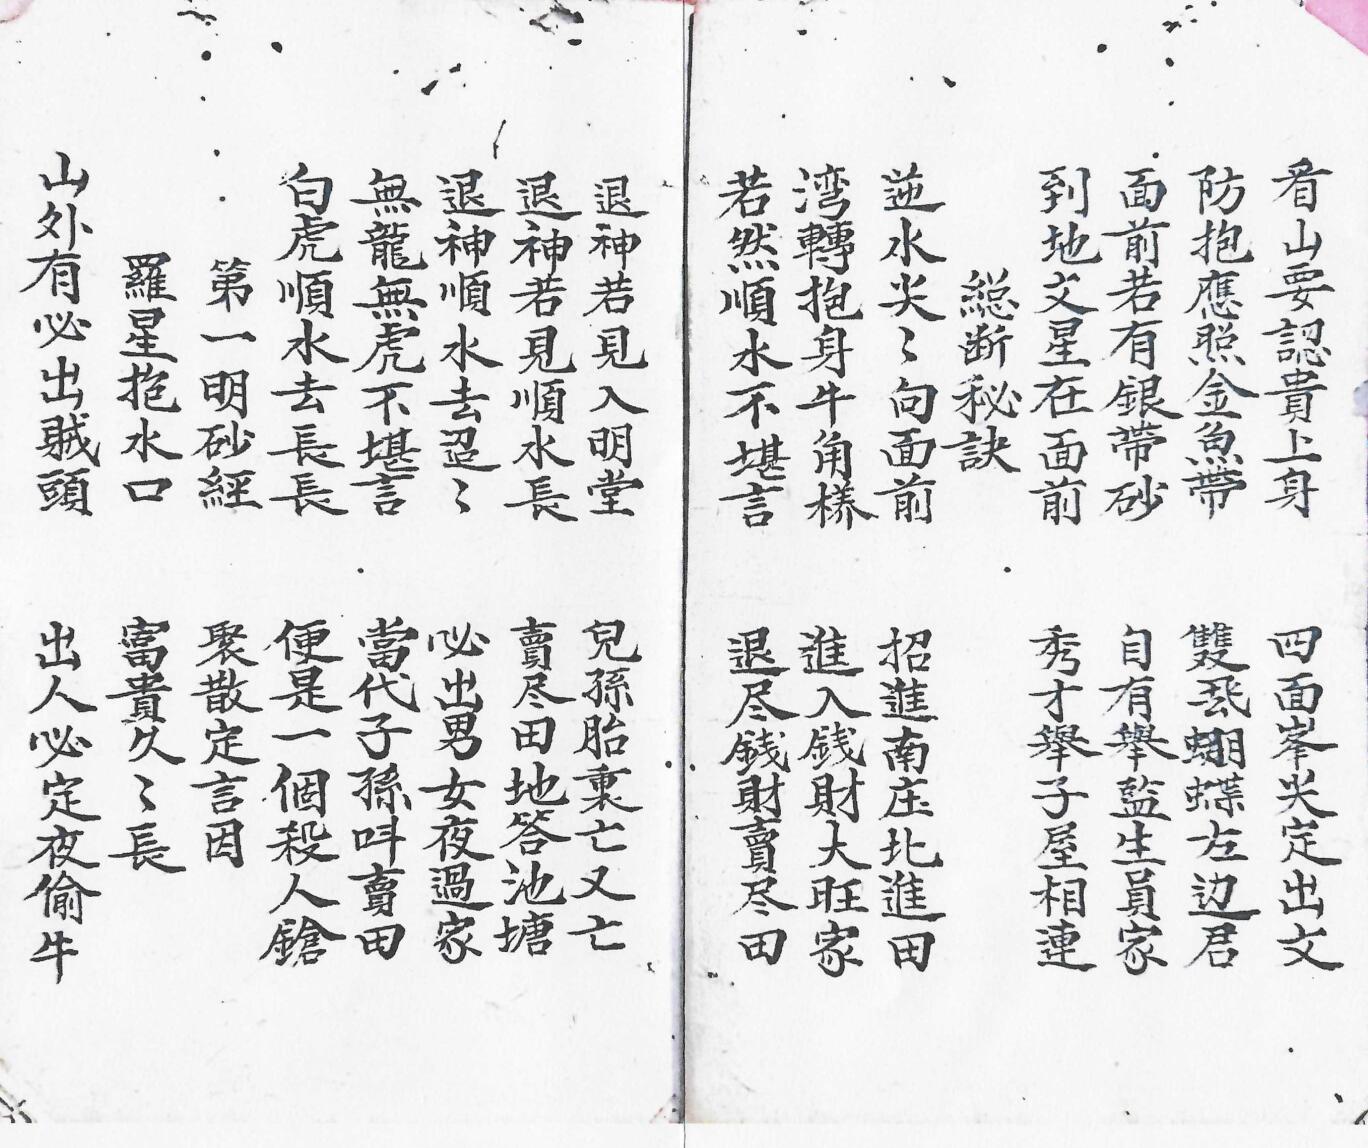 看山要認貴上身　四面峯尖定出文
防抱應照金魚帶　雙飛蝴蝶左边君
面前若有銀帶砂　自有舉監生員家
到地文星在面前　秀才舉子屋相連
総断秘訣
逆水尖〻向面前　招進南庄北進田
湾轉抱身牛角樣　進入銭財大旺家
若然順水不堪言　退尽銭財賣尽田
退神若見入明堂　兒孫胎裏亡又亡
退神若見順水長　賣尽田地答池塘
退神順水去迢〻　必出男女夜過家
無龍無虎不堪言　當代子孫叫賣田
白虎順水去長長　便是一個殺人鎗
第一明砂經　聚散定言因
羅星抱水口　富貴久〻長
山外有必出賊頭　出人必定夜偷牛